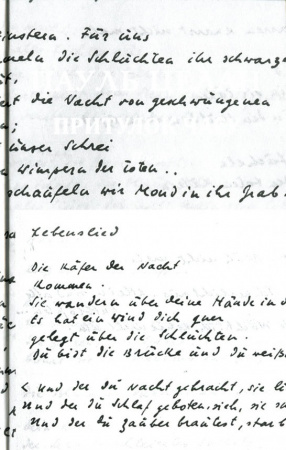 instern. Für uns
meln die Schluchten ihr schwarze
die Nacht von geschwungenen
unser Schrei
Wimpern der Toten..
schaufeln wir Mond in ihr Grab.
Lebenslied
Die Käfer der Nacht
kommen.
Sie wandern über deine Hände in d
Es hat ein Wind dich quer
gelegt über die Schluchten.
Du bist die Brücke und du weiß
Und der du Nacht gebracht, sie li
Und der du Schlaf geboten, sich, sie s
Und der du Zauber brautest, starb